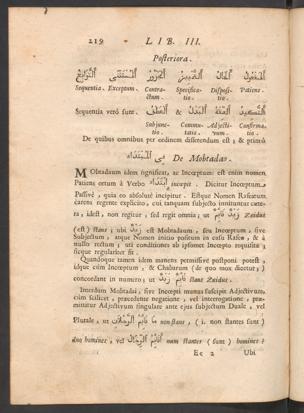 219 LIB. III.
Posteriora.
التوابع المستثنى المجرور التمييز الحال المفعول
Sequentia. Exceptum. Contra- Specifica- Disposi- Patiens.
ctum. tio. tio.
Sequentia verò sunt. العطف & البدل الصفة التأكيد
Subjunc- Commu- Adjecti- Confirma-
tio. tatio. vum. tio.
De quibus omnibus per ordinem disserendum est; & primò
في المبتداء De Mobtadao.
Mobtadaum idem significat, ac Inceptum: est enim nomen
Patiens ortum à Verbo ابتداء incepit. Dicitur Inceptum
Passivè, quia eo absolutè incipitur. Estque Nomen Rafaatum,
carens regente explicito, cui tanquam subjecto innitantur cæte-
ra; idest, non regitur, sed regit omnia; ut زيد قائم Zaidus
(est) stans; ubi زيد est Mobtadaum, seu Inceptum, sive
Subjectum, atque Nomen initiò positum in casu Rafaa, & à
nullo rectum; uti conditiones ab ipsomet Incepto requisitæ;
sicque regulariter fit.
Quandoque tamen idem manens permissivè postponi potest;
idque cum Inceptum, & Chabarum (de quo mox dicetur;)
concordant in numero; ut قائم زيد stans Zaidus.
Interdum Mobtadai, sive Incepti munus suscipit Adjectivum,
cùm scilicet, præcedente negatione, vel interrogatione, præ-
mittatur Adjectivum singulare ante ejus subjectum Duale, vel
Plurale, ut ما قائم الرجلان non stans, (i. non stantes sunt)
duo homines, vel أقائم الرجال num stantes (sunt) homines?
Ee 2 Ubi